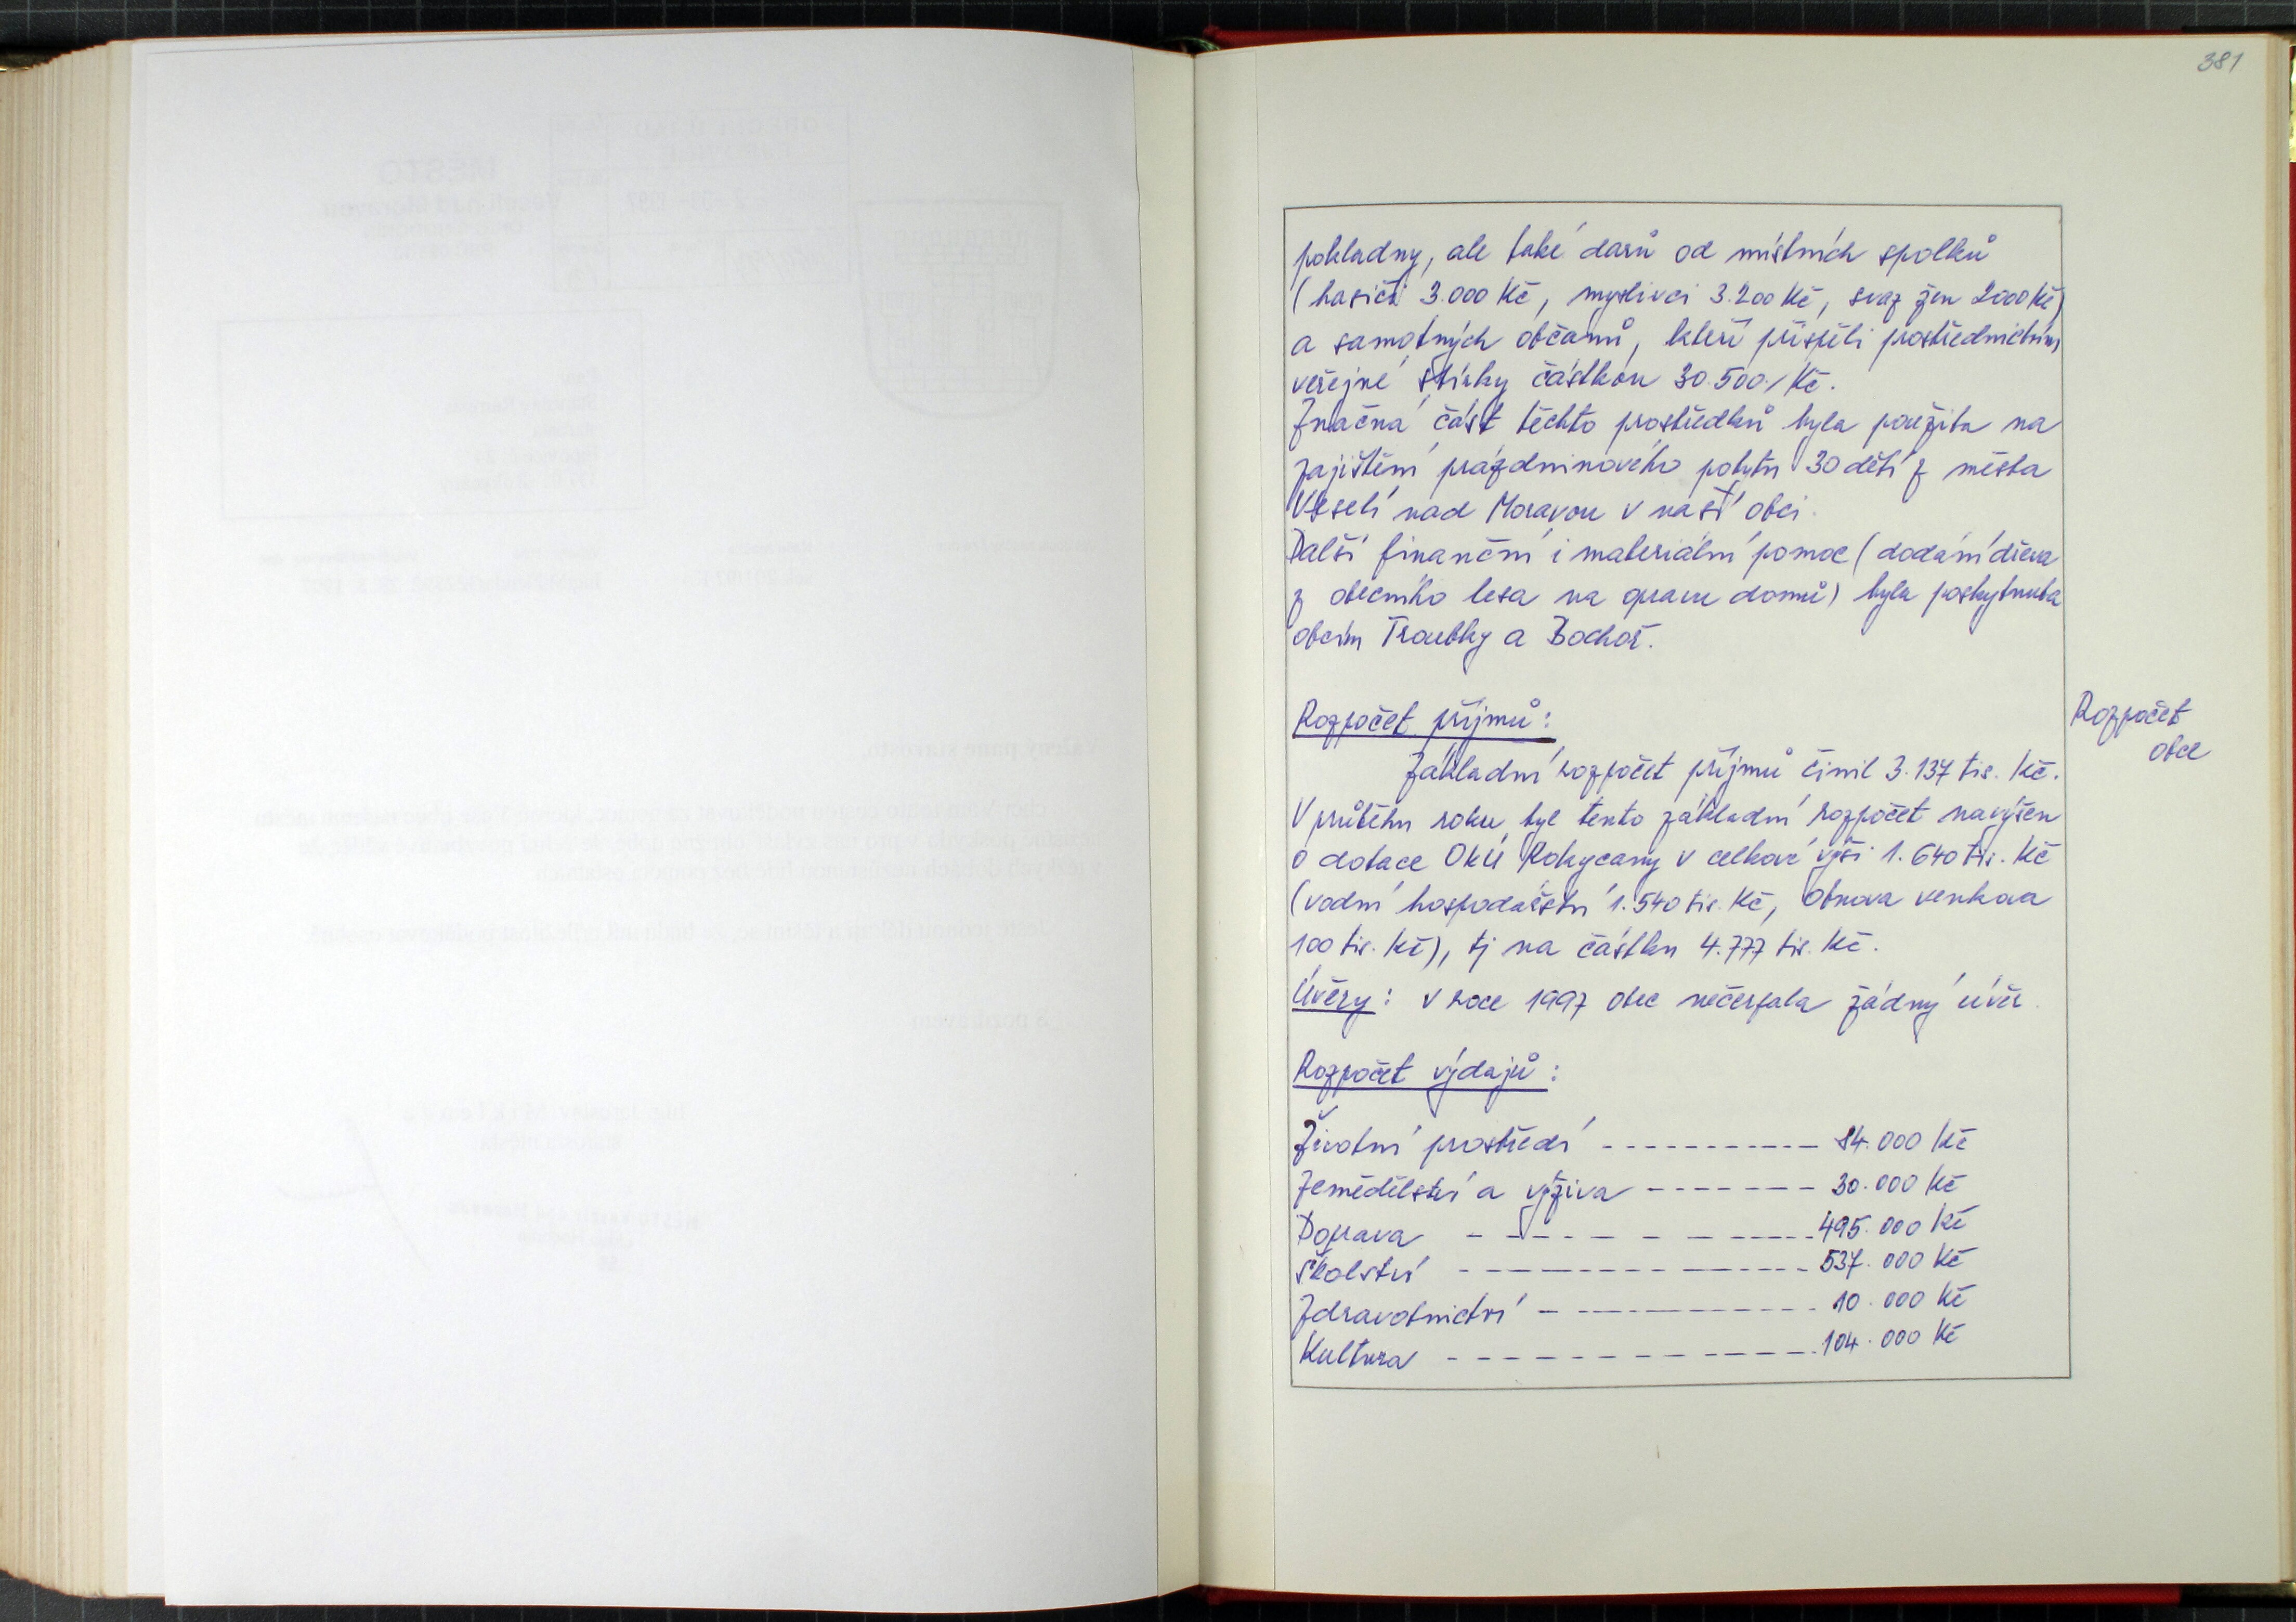 381
pokladny, ale také darů od místních spolků
(hasiči 3.000 Kč, myslivci 3.200 Kč, svaz žen 2000 Kč)
a samotných občanů, kteří přispěli prostřednictvím
veřejné sbírky částkou 30.500,/Kč.
Značná část těchto prostředků byla použita na
zajištění prázdninového pobytu 30 dětí z města
Veselí nad Moravou v naší obci.
Další finanční i materiální pomoc (dodání dřeva
z obecního lesa na opravu domů) byla poskytnuta
obcím Troubky a Bochoř.
Rozpočet příjmů:
Rozpočet
obce
Základní rozpočet příjmů činil 3.137 tis. Kč.
V průběhu roku byl tento základní rozpočet navýšen
o dotace OkÚ Rokycany v celkové výši 1.640 tis. Kč
(vodní hospodářství 1.540 tis. Kč, Obnova venkova
100 tis. Kč), tj na částku 4.777 tis. Kč.
Úvěry: v roce 1997 obec nečerpala žádný úvěr.
Rozpočet výdajů:
Životní prostředí ----------- 84.000 Kč
Zemědělství a výživa ------- 30.000 Kč
Doprava ------------- 495.000 Kč
Školství ------------- 537.000 Kč
Zdravotnictví ----------- 10.000 Kč
Kultura ------------- 104.000 Kč